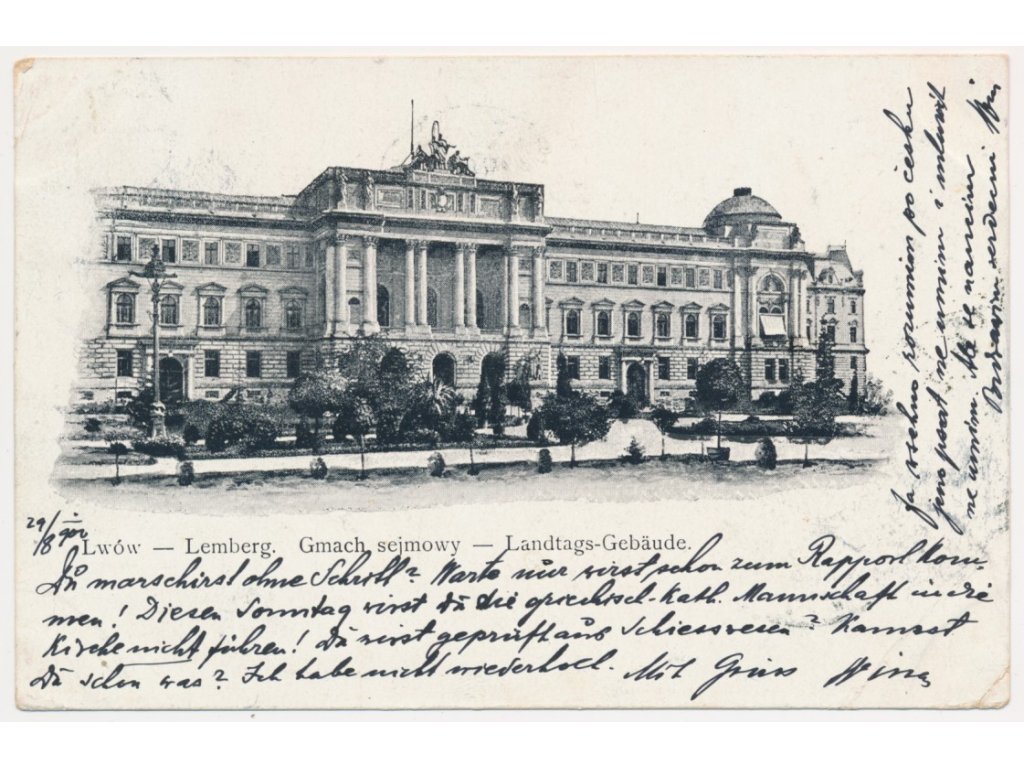 29/8
Lwów — Lemberg. Gmach sejmowy — Landtags-Gebäude.
Du marschirst ohne Schritt? Warte nur wirst schon zum Rapport kom-
men! Diesen Sonntag wirst du die griechisch-kath. Mannschaft in die
Kirche nicht führen! Du wirst geprüft aus Schiesswesen? Kannst
Du schon was? Ich habe nicht wiederholt. Mit Gruss
Ja všechno rozumim po česku
jeno psat ne umim i mluvit
ne umim.